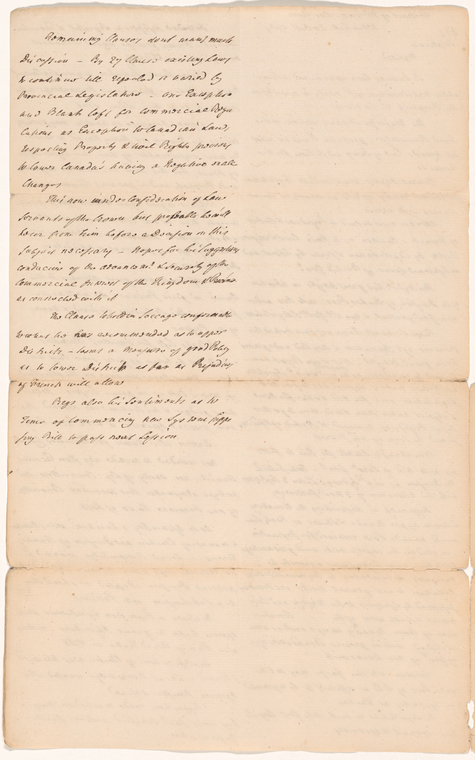 Remaining Clauses dont want much
Discussion - By 27 Clause existing Laws
to continue till repealed or varied by
Provincial Legislature - one Exception
and Blank left for Commercial Regu
lations as Exception to Canadian Laws
respecting Property & Civil Rights previous
to Lower Canada's having a Negative on all
Changes
This now under Consideration of Law
Servants of the Crown but probable he will
hear from him before a Decision on this
Subject necessary - Hopes for his Suggestions
conducive of the advantage & security of the
Commercial Interest of the Kingdom &
as connected with it
The Clause to hold in Soccage conformable
to what he has recommended as to upper
Districts, - seems a Measure of good Policy
as to lower Districts as far as Prejudices
of French will allow
Begs also his Sentiments as to
Time of Commencing new System suppo
sing Bill to pass next Session